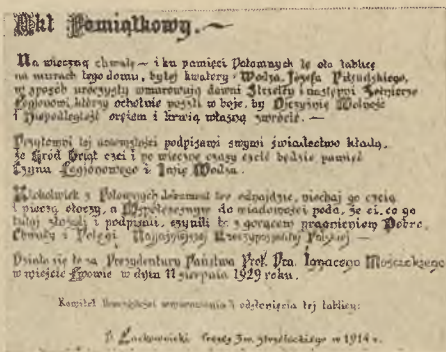 Akt Pamiątkowy. —
Na wieczną chwałę — i ku pamięci Potomnych tę oto tablicę
na murach tego domu, byłej kwatery Wodza Józefa Piłsudskiego,
w sposób uroczysty wmurowują dawni Strzelcy i następni Żołnierze
Legjonowi, którzy ochotnie poszli w boje, by Ojczyźnie Wolność
i Niepodległość orężem i krwią własną zwrócić. —
Przytomni tej uroczystości podpisami swymi świadectwo kładą,
że Gród czci i po wieczne czasy czcić będzie pamięć
Czynu Legjonowego i Imię Wodza.
Ktokolwiek z Potomnych dokument ten odnajdzie, niechaj go czcią
i pieczą otoczy, a Współczesnym do wiadomości poda, że ci, co go
tutaj złożyli i podpisali, czynili to z gorącem pragnieniem Dobra,
Chwały i Potęgi Najjaśniejszej Rzeczypospolitej Polskiej —
Działo się to za Prezydentury Państwa Prof. Dra. Ignacego Mościckiego
w mieście Lwowie w dniu 11 sierpnia 1929 roku.
Komitet wmurowania i odsłonięcia tej tablicy:
Prezes Zw. Strzeleckiego w 1914 r.